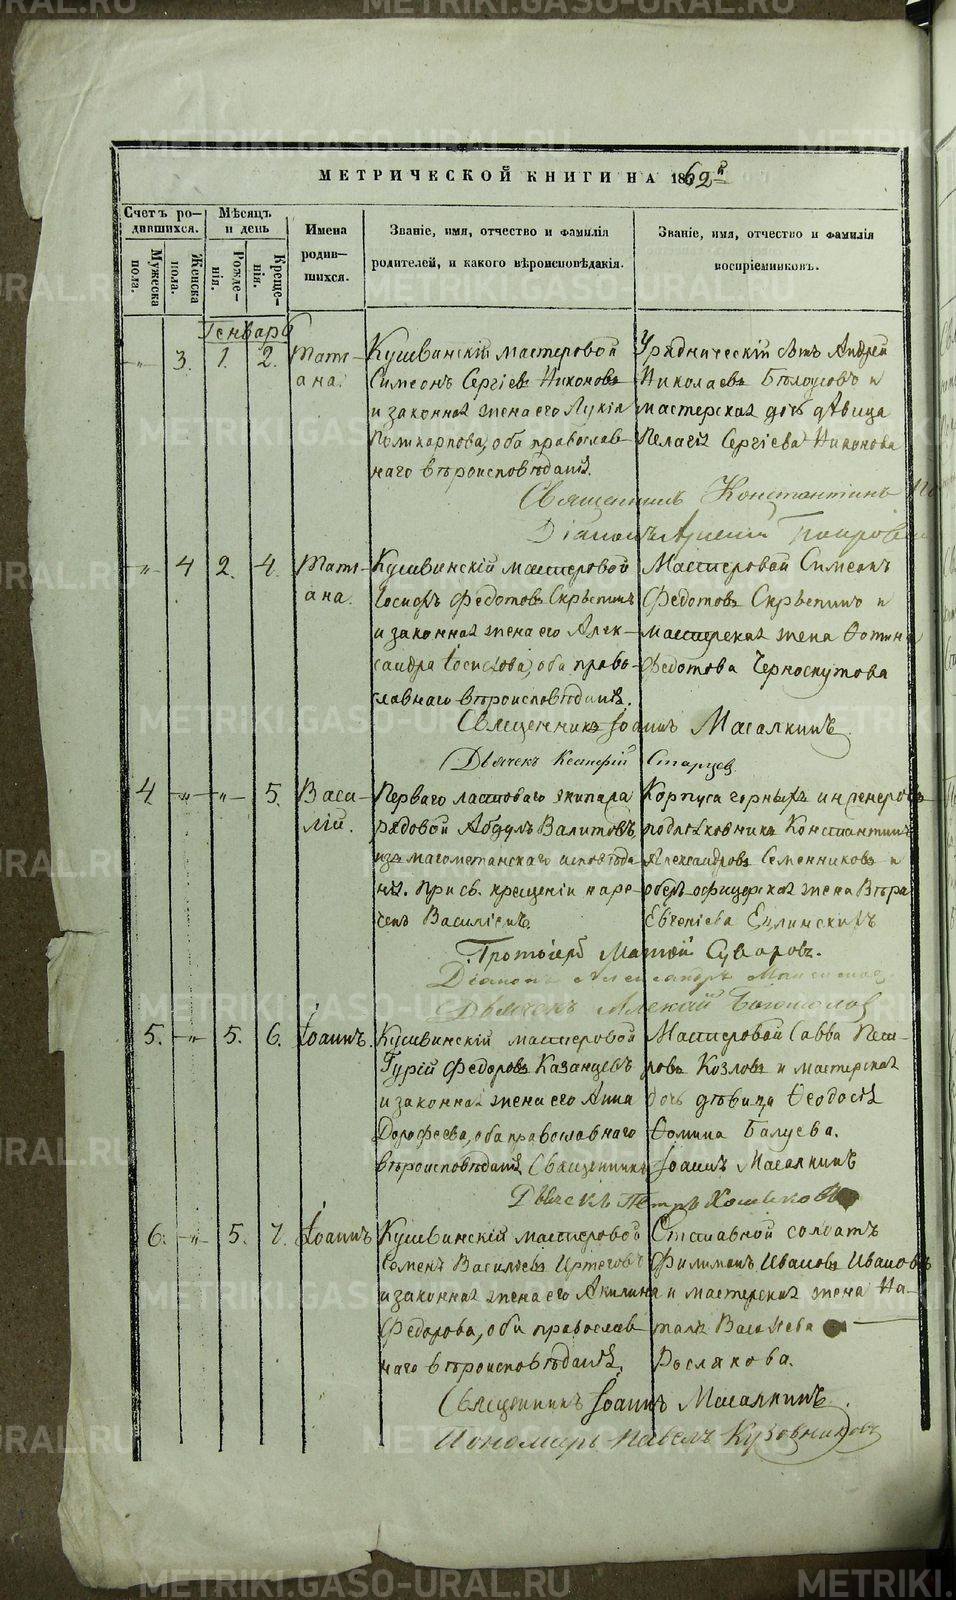 МЕТРИЧЕСКОЙ КНИГИ НА 1862й
Счетъ ро-
дившихся.
Мѣсяцъ
и день
Имена
родив-
шихся.
Званіе, имя, отчество и фамилія
родителей, и какого вѣроисповѣданія.
Званіе, имя, отчество и фамилія
воспріемниковъ.
Мужеска
пола.
Женска
пола.
Рожде-
нія.
Креще-
нія.
Генварь
3. 1. 2. Тать-
яна.
Кушвинскій мастеровой
Симеонъ Сергіевъ Никоновъ
и законная жена его Лукія
Поликарпова, оба православ-
наго вѣроисповѣданія.
Урядническій сынъ Андрей
Николаевъ Бѣлоусовъ и
мастерская дочь дѣвица
Пелагія Сергіева Никонова
Священникъ Константинъ
Діаконъ
4 2. 4. Тать-
яна.
Кушвинскій мастеровой
Іосифъ Федотовъ Скрыпинъ
и законная жена его Алек-
сандра Іосифова, оба право-
славнаго вѣроисповѣданія.
Мастеровой Симеонъ
Федотовъ Скрыпинъ и
мастерская жена Фотина
Федотова Черноскутова
Священникъ Іоаннъ Масалкинъ.
Дьячекъ Старцев
4. 5. Васи-
лій.
Перваго ластоваго экипажа
рядовой Абдулъ Валитовъ
изъ магометанскаго исповѣда-
нія. При св. крещеніи наре-
ченъ Василіемъ.
Корпуса горныхъ инженеровъ
подполковникъ Константинъ
Александровъ Семенниковъ и
оберъ-офицерская жена Вѣра
Евгеніева
Протоіерей Матѳей Суваровъ.
Діаконъ Александръ
Дьячекъ Алексій Богословъ
5. 5. 6. Іоаннъ.
Кушвинскій мастеровой
Гурій Федоровъ Казанцевъ
и законная жена его Анна
Дорофеева, оба православнаго
вѣроисповѣданія.
Мастеровой Савва Пет-
ровъ Козловъ и мастерская
дочь дѣвица Ѳеодосія
Ѳомина Балуева.
Священникъ Іоаннъ Масалкинъ
Дьячекъ Петръ
6. 5. 7. Іоаннъ
Кушвинскій мастеровой
Семенъ Васильевъ Иртеговъ
и законная жена его Акилина
Федорова, оба православ-
наго вѣроисповѣданія.
Отставной солдатъ
Филимонъ Ивановъ Ивановъ
и мастерская жена На-
талья Васильева
Рослякова.
Священникъ Іоаннъ Масалкинъ.
Пономарь Павелъ Кузовниковъ
METRIKI.GASO-URAL.RU